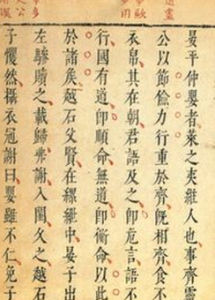 晏平仲嬰者萊之夷維人也事齊靈
公以節儉力行重於齊既相齊食不
衣帛其在朝君語及之即危言語不
行國有道即順命無道即衡命以此
於諸侯越石父賢在縲紲中晏子出
左驂贖之載歸弗謝入閨久之越石
子戄然攝衣冠謝曰嬰雖不仁免子